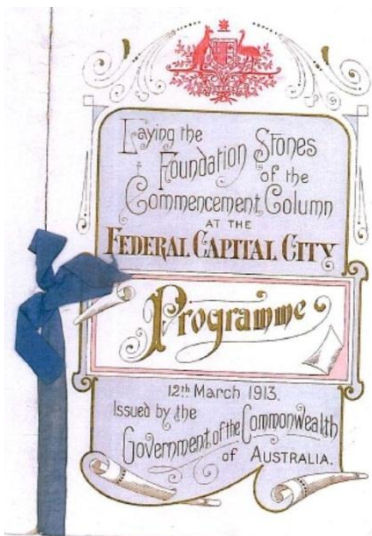 Laying the
Foundation Stones
of the
Commencement Column
AT THE
FEDERAL CAPITAL CITY
Programme
12th March 1913.
Issued by the
Government of the Commonwealth
of AUSTRALIA.